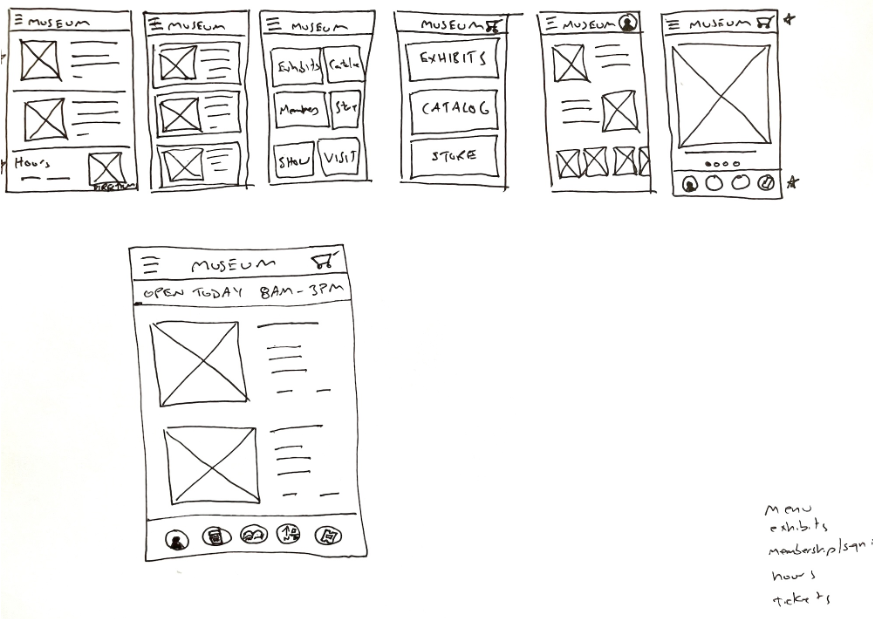 MUSEUM
Hours
MUSEUM
MUSEUM
Exhibits
Members
SHOW
VISIT
MUSEUM
EXHIBITS
CATALOG
STORE
MUSEUM
MUSEUM
MUSEUM
OPEN TODAY 8AM - 3PM
Menu
exhibits
hours
tickets